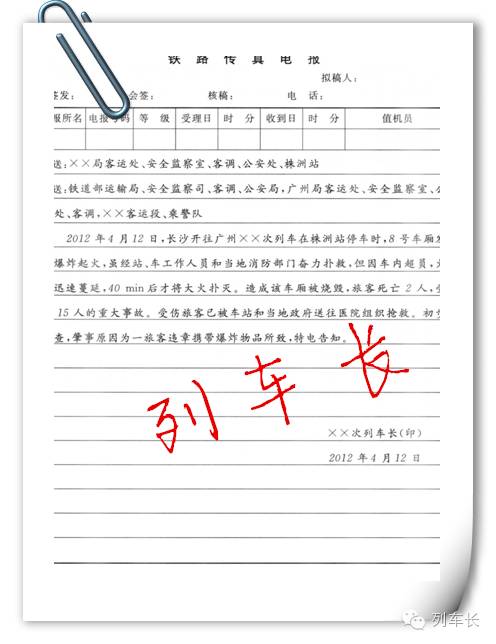 铁路传真电报
拟稿人:
签发: 会签: 核稿: 电话:
报所名 电报号码 等级 受理日 时分 收到日 时分 值机员
送:××局客运处、安全监察室、客调、公安处、株洲站
送:铁道部运输局、安全监察司、客调、公安局,广州局客运处、安全监察室、公
处、客调,××客运段、乘警队
2012年4月12日,长沙开往广州××次列车在株洲站停车时,8号车厢发
爆炸起火,虽经站、车工作人员和当地消防部门奋力扑救,但因车内超员,火
迅速蔓延,40 min后才将大火扑灭。造成该车厢被烧毁,旅客死亡2人,受
15人的重大事故。受伤旅客已被车站和当地政府送往医院组织抢救。初
查,肇事原因为一旅客违章携带爆炸物品所致,特电告知。
列车长
××次列车长(印)
2012年4月12日
列车长